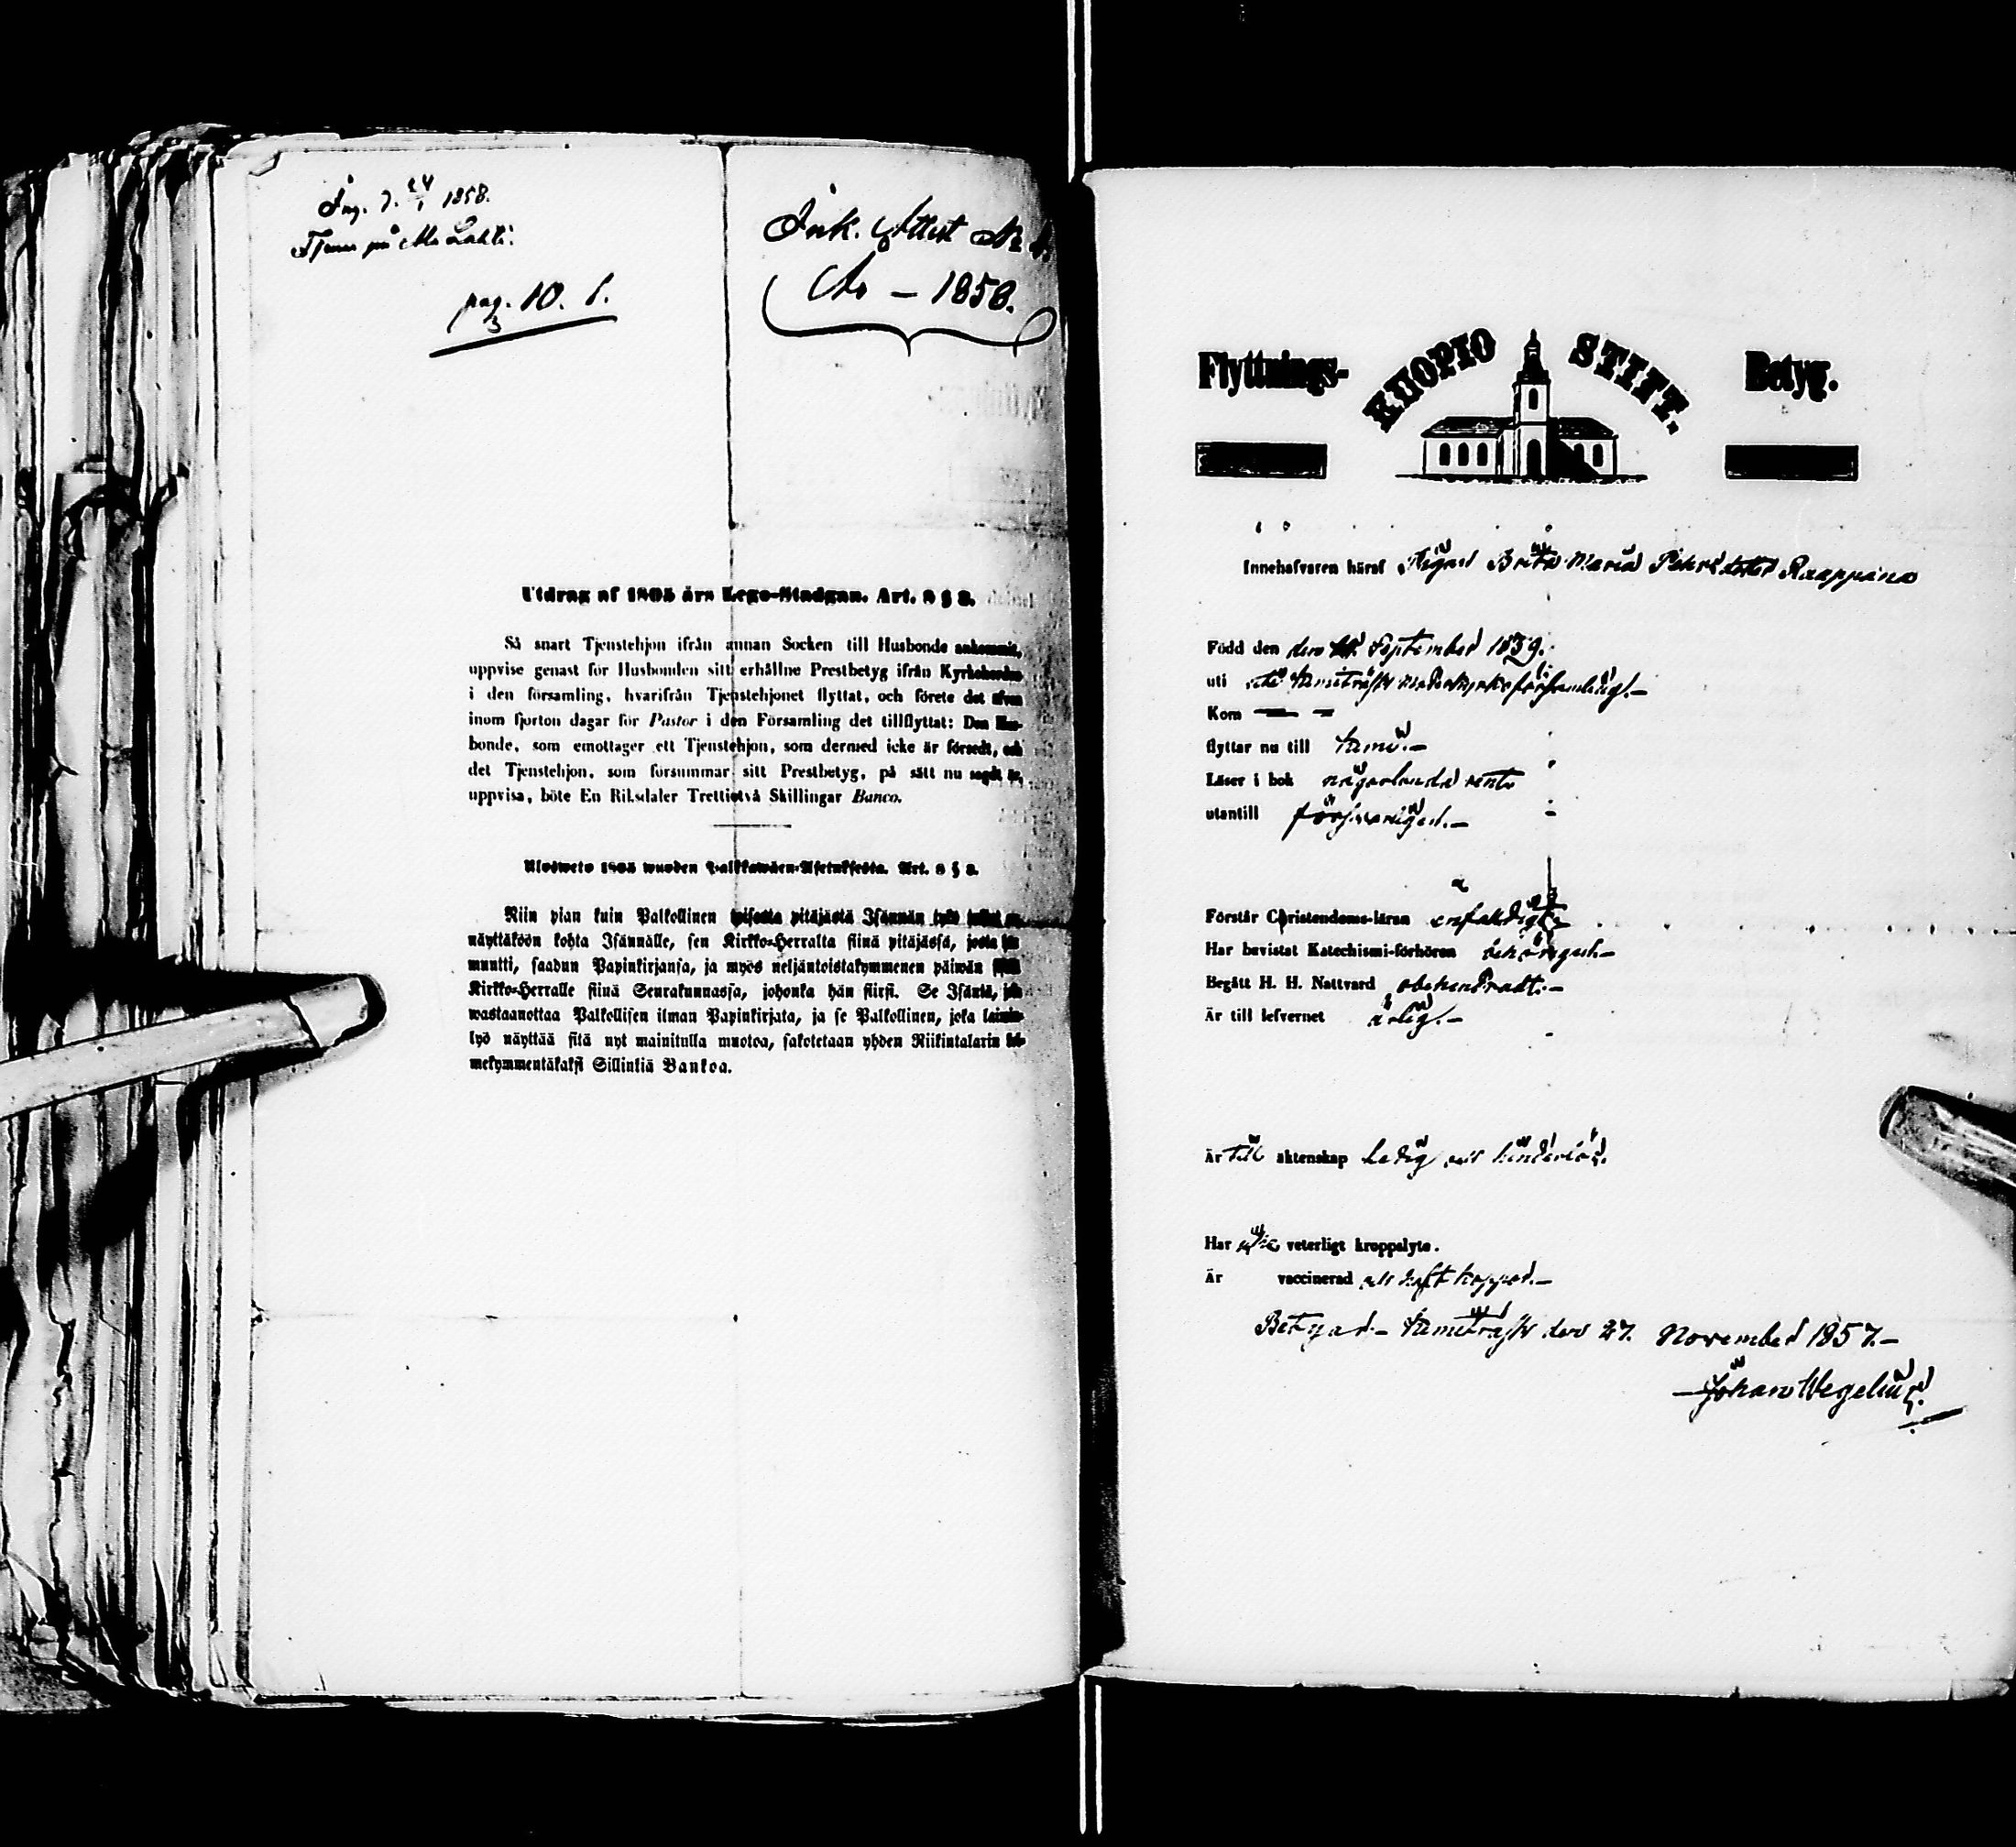 Ing. d. 24/1 1858.
Tjenar på Ala Lahti.
pag. 10. 1.
Ink. Attest No
Ao — 1858.
Utdrag af 1805 års Lego-Stadgan. Art. 8 § 8.
Så snart Tjenstehjon ifrån annan Socken till Husbonde ankommit,
uppvise genast för Husbonden sitt erhållne Prestbetyg ifrån Kyrkoherden
i den församling, hvarifrån Tjenstehjonet flyttat, och förete det äfven
inom fjorton dagar för Pastor i den Församling det tillflyttat: Den Hus-
bonde, som emottager ett Tjenstehjon, som dermed icke är försedt, och
det Tjenstehjon, som försummar sitt Prestbetyg, på sätt nu sagdt är,
uppvisa, böte En Riksdaler Trettiotvå Skillingar Banco.
Ulosweto 1805 wuoden Palkkawäen-Asetuksesta. Art. 8 § 8.
Niin pian kuin Palkollinen toisesta pitäjästä Isännän tykö
näyttäköön kohta Isännälle, sen Kirkko-Herralta siinä pitäjässä, josta hän
muutti, saadun Papinkirjansa, ja myös neljäntoistakymmenen päiwän
Kirkko-Herralle siinä Seurakunnassa, johonka hän siirsi. Se Isäntä, joka
wastaanottaa Palkollisen ilman Papinkirjata, ja se Palkollinen, joka laimin-
lyö näyttää sitä nyt mainitulla muotoa, sakotetaan yhden Riikintalarin kol-
mekymmentäkaksi Sillinkiä Bankoa.
Flyttnings- KUOPIO STIFT. Betyg.
Innehafvaren häraf Pigan Brita Maria Pehrsdotter Raappana
Född den den September 1839.
uti Kemiträsk moderkyrkoförsamling.—
Kom — —
flyttar nu till Kemi.—
Läser i bok någorlunda rent
utantill försvarligen.—
Förstår Christendoms-läran enfaldigt
Har bevistat Katechismi-förhören behörigen.—
Begått H. H. Nattvard obehindradt.—
Är till lefvernet ärlig.—
Är till äktenskap ledig och hinderlös.
Har icke veterligt kroppslyte.
Är vaccinerad och haft koppor.—
Betygad.— Kemiträsk den 27. November 1857.—
Johan Wegelius.